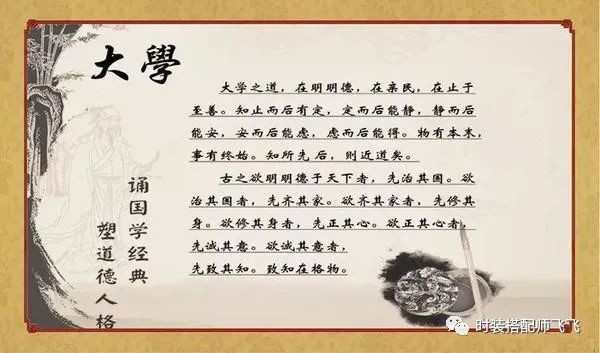 大學
大学之道，在明明德，在亲民，在止于
至善。知止而后有定，定而后能静，静而后
能安，安而后能虑，虑而后能得。物有本末，
事有终始。知所先后，则近道矣。
古之欲明明德于天下者，先治其国。欲
治其国者，先齐其家。欲齐其家者，先修其
身。欲修其身者，先正其心。欲正其心者，
先诚其意。欲诚其意者，
先致其知。致知在格物。
诵国学经典
塑道德人格
时装搭配师飞飞